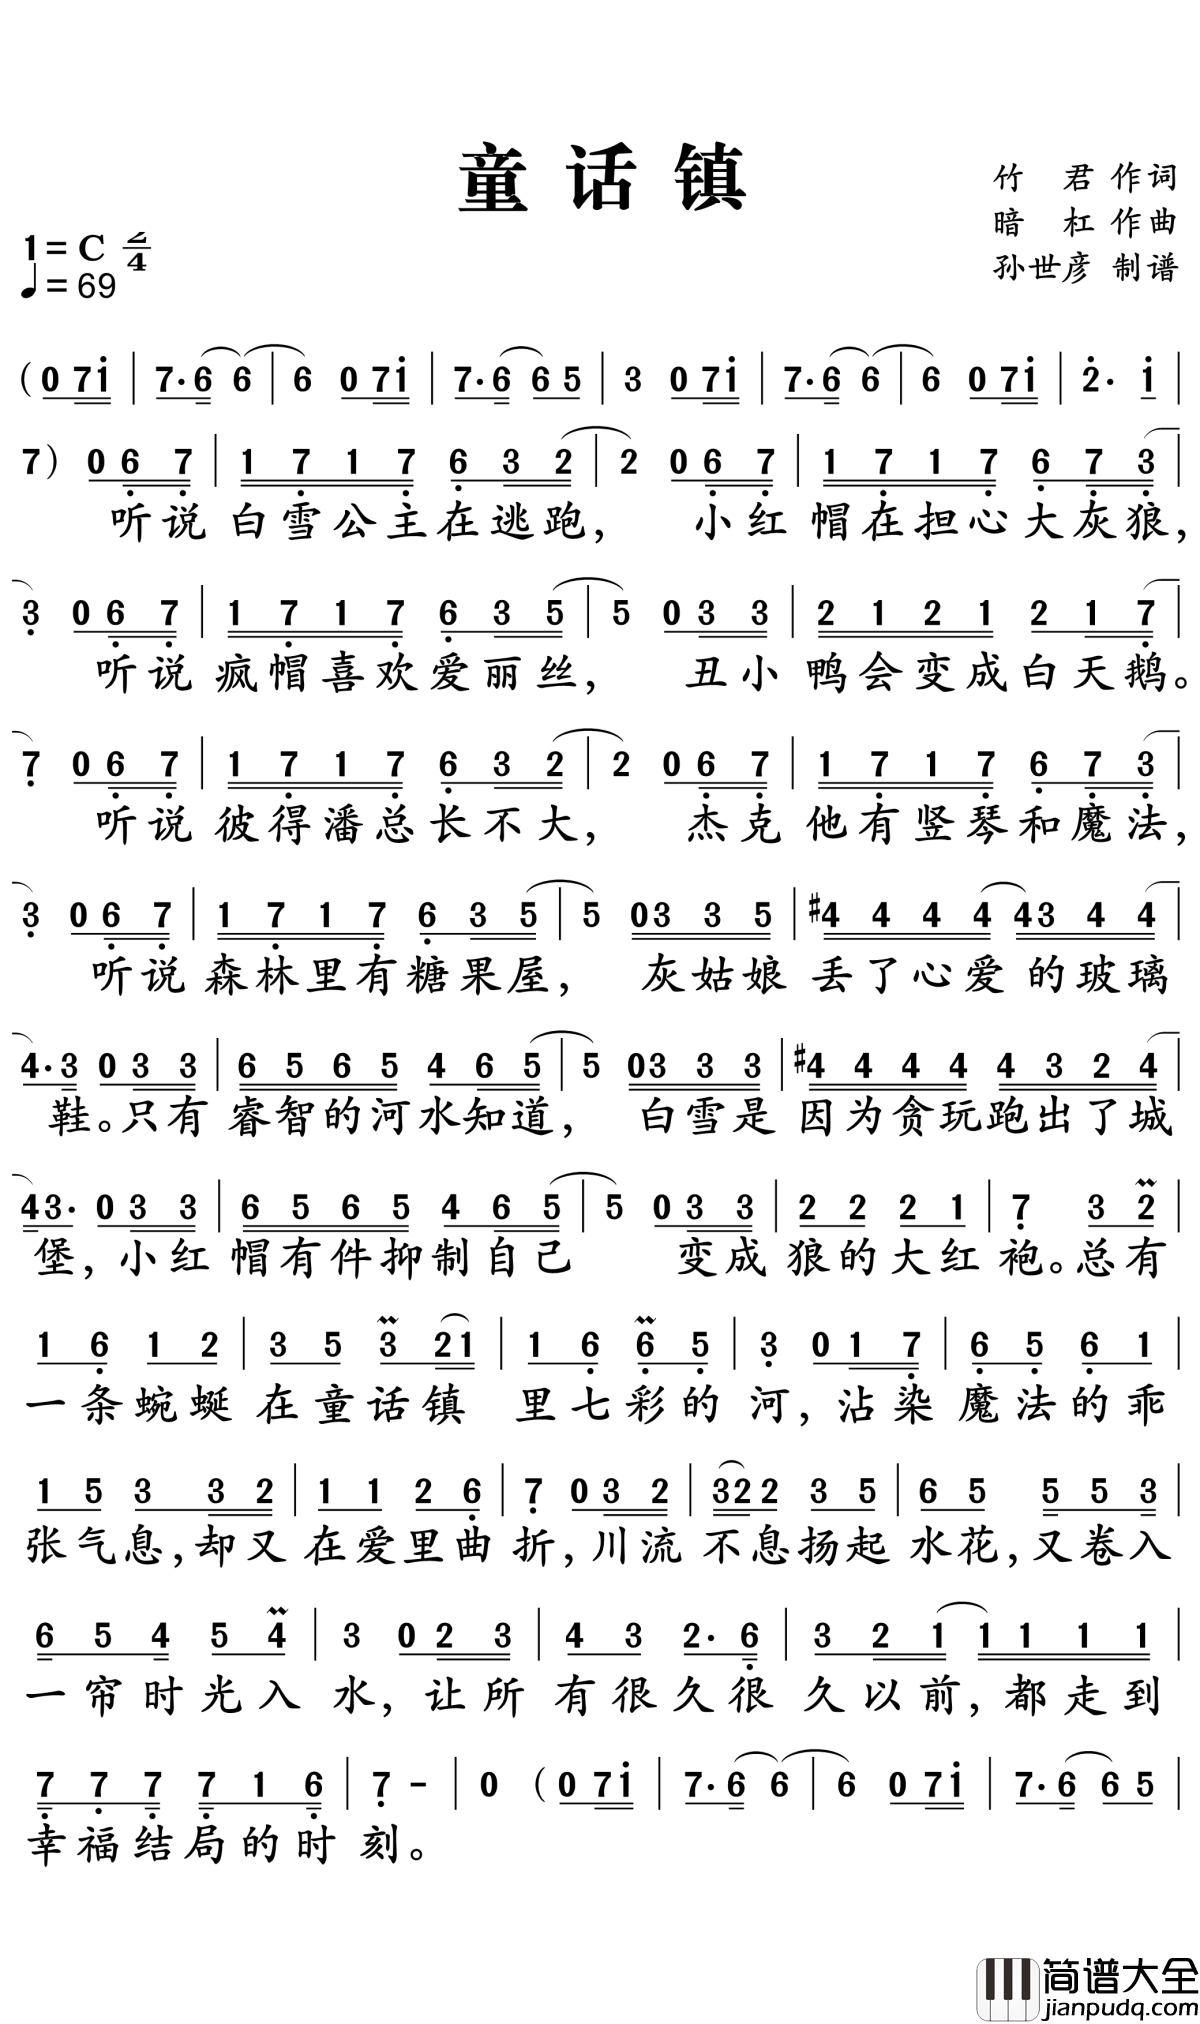 童话镇
竹 君 作词
暗 杠 作曲
孙世彦 制谱
1= C 2/4
♩= 69
( 0 7 1̇ | 7· 6 6 | 6 0 7 1̇ | 7· 6 6 5 | 3 0 7 1̇ | 7· 6 6 | 6 0 7 1̇ | 2̇· 1̇ |
7 ) 0 6̣ 7̣ | 1 7̣ 1 7̣ 6̣ 3 2 | 2 0 6̣ 7̣ | 1 7̣ 1 7̣ 6̣ 7̣ 3̣ |
听说 白雪公主在逃跑, 小红 帽在担心大灰狼,
3̣ 0 6̣ 7̣ | 1 7̣ 1 7̣ 6̣ 3 5 | 5 0 3 3 | 2 1 2 1 2 1 7̣ |
听说 疯帽喜欢爱丽丝, 丑小 鸭会变成白天鹅。
7̣ 0 6̣ 7̣ | 1 7̣ 1 7̣ 6̣ 3 2 | 2 0 6̣ 7̣ | 1 7̣ 1 7̣ 6̣ 7̣ 3̣ |
听说 彼得潘总长不大, 杰克 他有竖琴和魔法,
3̣ 0 6̣ 7̣ | 1 7̣ 1 7̣ 6̣ 3 5 | 5 0 3 3 5 | #4 4 4 4 4 3 4 4 |
听说 森林里有糖果屋, 灰姑娘 丢了心爱 的玻璃
4· 3 0 3 3 | 6 5 6 5 4 6 5 | 5 0 3 3 3 | #4 4 4 4 4 3 2 4 |
鞋。只有 睿智的河水知道, 白雪是 因为贪玩跑出了城
4 3· 0 3 3 | 6 5 6 5 4 6 5 | 5 0 3 3 | 2 2 2 1 | 7̣ 3 2 |
堡, 小红 帽有件抑制自己 变成 狼的大红 袍。总有
1 6̣ 1 2 | 3 5 3 2 1 | 1 6̣ 6̣ 5̣ | 3̣ 0 1 7̣ | 6̣ 5̣ 6̣ 1 |
一条蜿蜒 在童话镇 里七彩的 河, 沾染 魔法的乖
1 5 3 3 2 | 1 1 2 6̣ | 7̣ 0 3 2 | 3 2 2 3 5 | 6 5 5 5 3 |
张气息, 却又 在爱里曲 折, 川流 不息扬起 水花, 又卷入
6 5 4 5 4 | 3 0 2 3 | 4 3 2· 6̣ | 3 2 1 1 1 1 1 |
一帘时光入 水, 让所 有很久很 久以前, 都走到
7̣ 7̣ 7̣ 7̣ 1 6̣ | 7̣ - | 0 ( 0 7 1̇ | 7· 6 6 | 6 0 7 1̇ | 7· 6 6 5 |
幸福结局的时 刻。
简谱大全
jianpudq.com